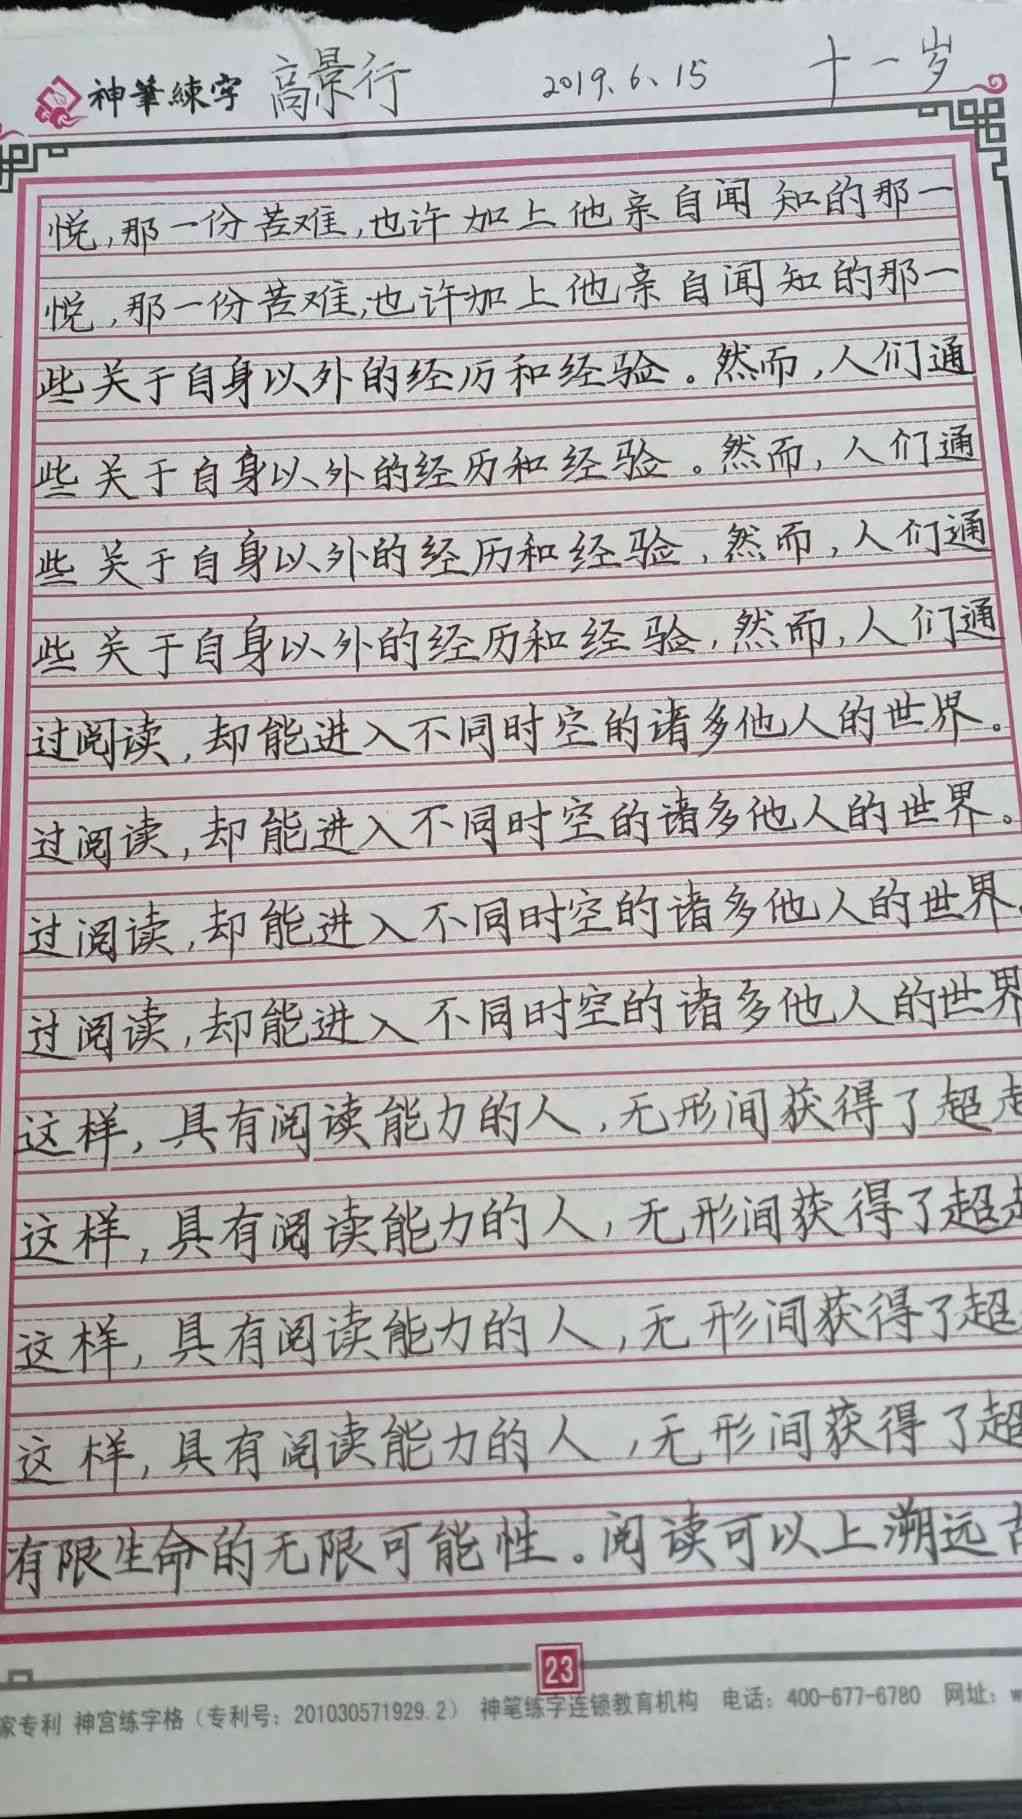 神筆練字 高景行 2019.6.15 十一岁
悦,那一份苦难,也许加上他亲自闻知的那一
悦,那一份苦难,也许加上他亲自闻知的那一
些关于自身以外的经历和经验。然而,人们通
些关于自身以外的经历和经验。然而,人们通
些关于自身以外的经历和经验,然而,人们通
些关于自身以外的经历和经验,然而,人们通
过阅读,却能进入不同时空的诸多他人的世界。
过阅读,却能进入不同时空的诸多他人的世界。
过阅读,却能进入不同时空的诸多他人的世界.
过阅读,却能进入不同时空的诸多他人的世界
这样,具有阅读能力的人,无形间获得了超
这样,具有阅读能力的人,无形间获得了超
这样,具有阅读能力的人,无形间获得了超
这样,具有阅读能力的人,无形间获得了超
有限生命的无限可能性。阅读可以上溯远古
23
家专利 神宫练字格（专利号：201030571929.2） 神笔练字连锁教育机构 电话：400-677-6780 网址：w